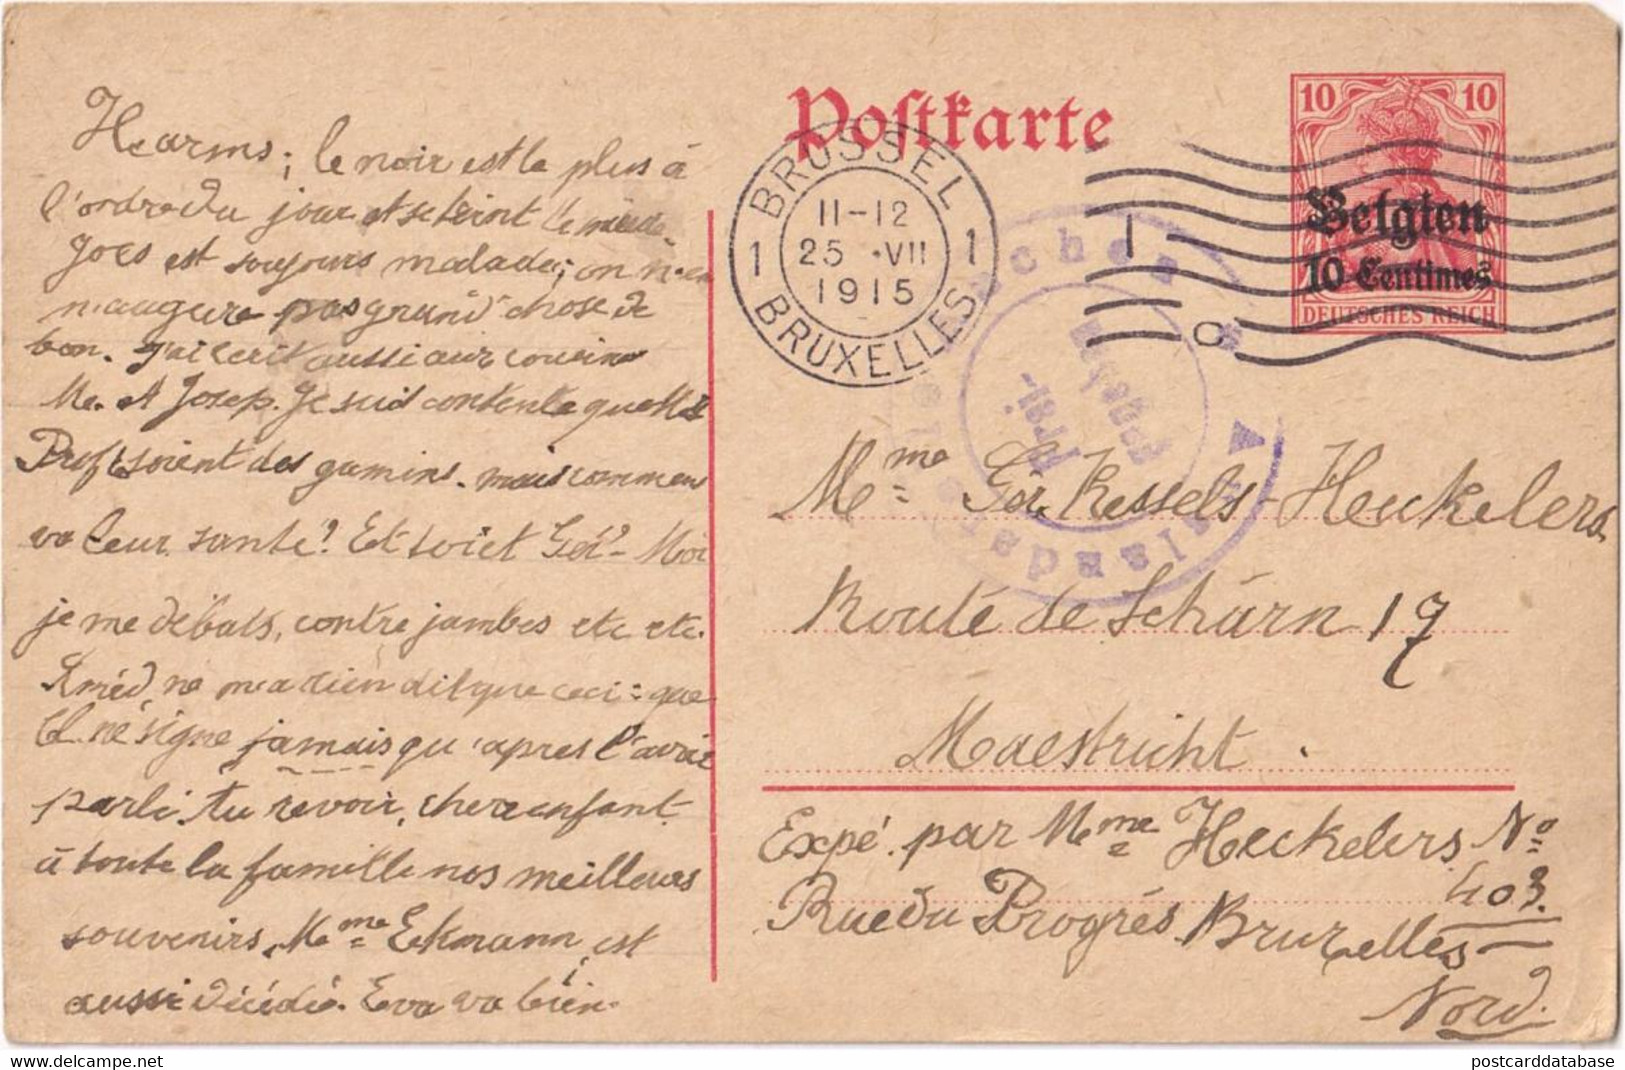 Harms; le noir est le plus à
l'ordre du jour et se teint
Joes est toujours malade; on n'en
n'augure pas grand'chose de
bon. J'ai écrit aussi aux cousins
Me. et Josep. Je suis contente que
soient des gamins. mais commen
va leur santé? Et toi et Gér? Moi
je me débats, contre jambes etc etc.
Améd ne m'a rien dit que ceci: que
ne signe jamais qu'après l'avoir
parlé. Au revoir, chère enfant
à toute la famille nos meilleurs
souvenirs. Mme Eckmann, est
aussi décédé. Eva va bien.
Postkarte
BRÜSSEL
1 1
11-12
25 .VII
1915
BRUXELLES
10 10
Belgien
10 Centimes
DEUTSCHES REICH
Mme Gér. Kessels-Heckelers
Route de Schärn 17
Maestricht.
Expé. par Mme Heckelers No
403.
Rue du Progrés Bruxelles
Nord.
postcarddatabase